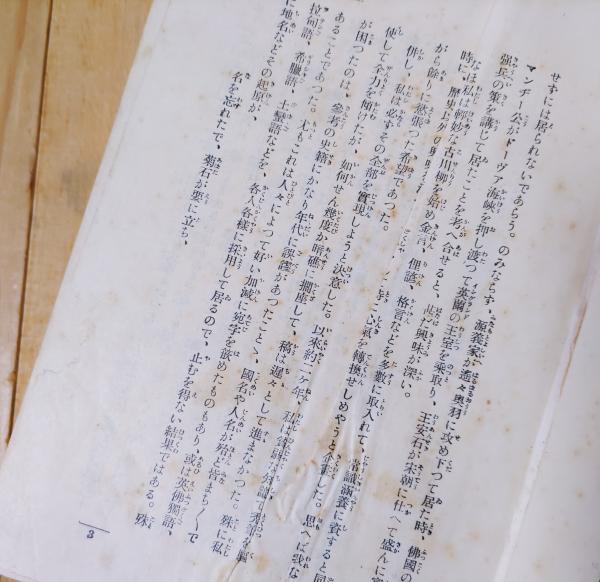 せずには居られないであらう。のみならず、源義家が遙々奥羽に攻め下つて居た時、佛國の
マンヂー公がドーヴァ海峡を押し渡つて英蘭の王室を乘取り、王安石が宋朝に仕へて盛んに
强兵の策を講じて居たことを考へ合せると、興味が深い。
なほ私は輕妙な古川柳を始め金言、俚諺、格言などを多數に取入れて、常識涵養に資すると同
時に、歷史
心氣を轉換せしめやうと企畫した。思へば
がら餘りに慾張つた希望であつた。
併し、私は必ずその全部を實現しようと決意した。以來約二ヶ年、私は
使して全力を傾けたが、如何せん幾度か暗礁に擱座して、稿は遲々として進まなかつた。殊に私
が困つたのは、參考の史籍にかなり年代に誤謬があつたことゝ、國名や人名が殆ど皆まち〱で
あることであつた。尤もこれは人々によつて好い加減に宛字を嵌めたものもあり、或は英佛獨語、
拉甸語、希臘語、土蠻語などを、各人各樣に採用して居るので、止むを得ない結果ではある。殊
に地名などその起原が、
名を忘れたで、菊石が要に立ち、
3